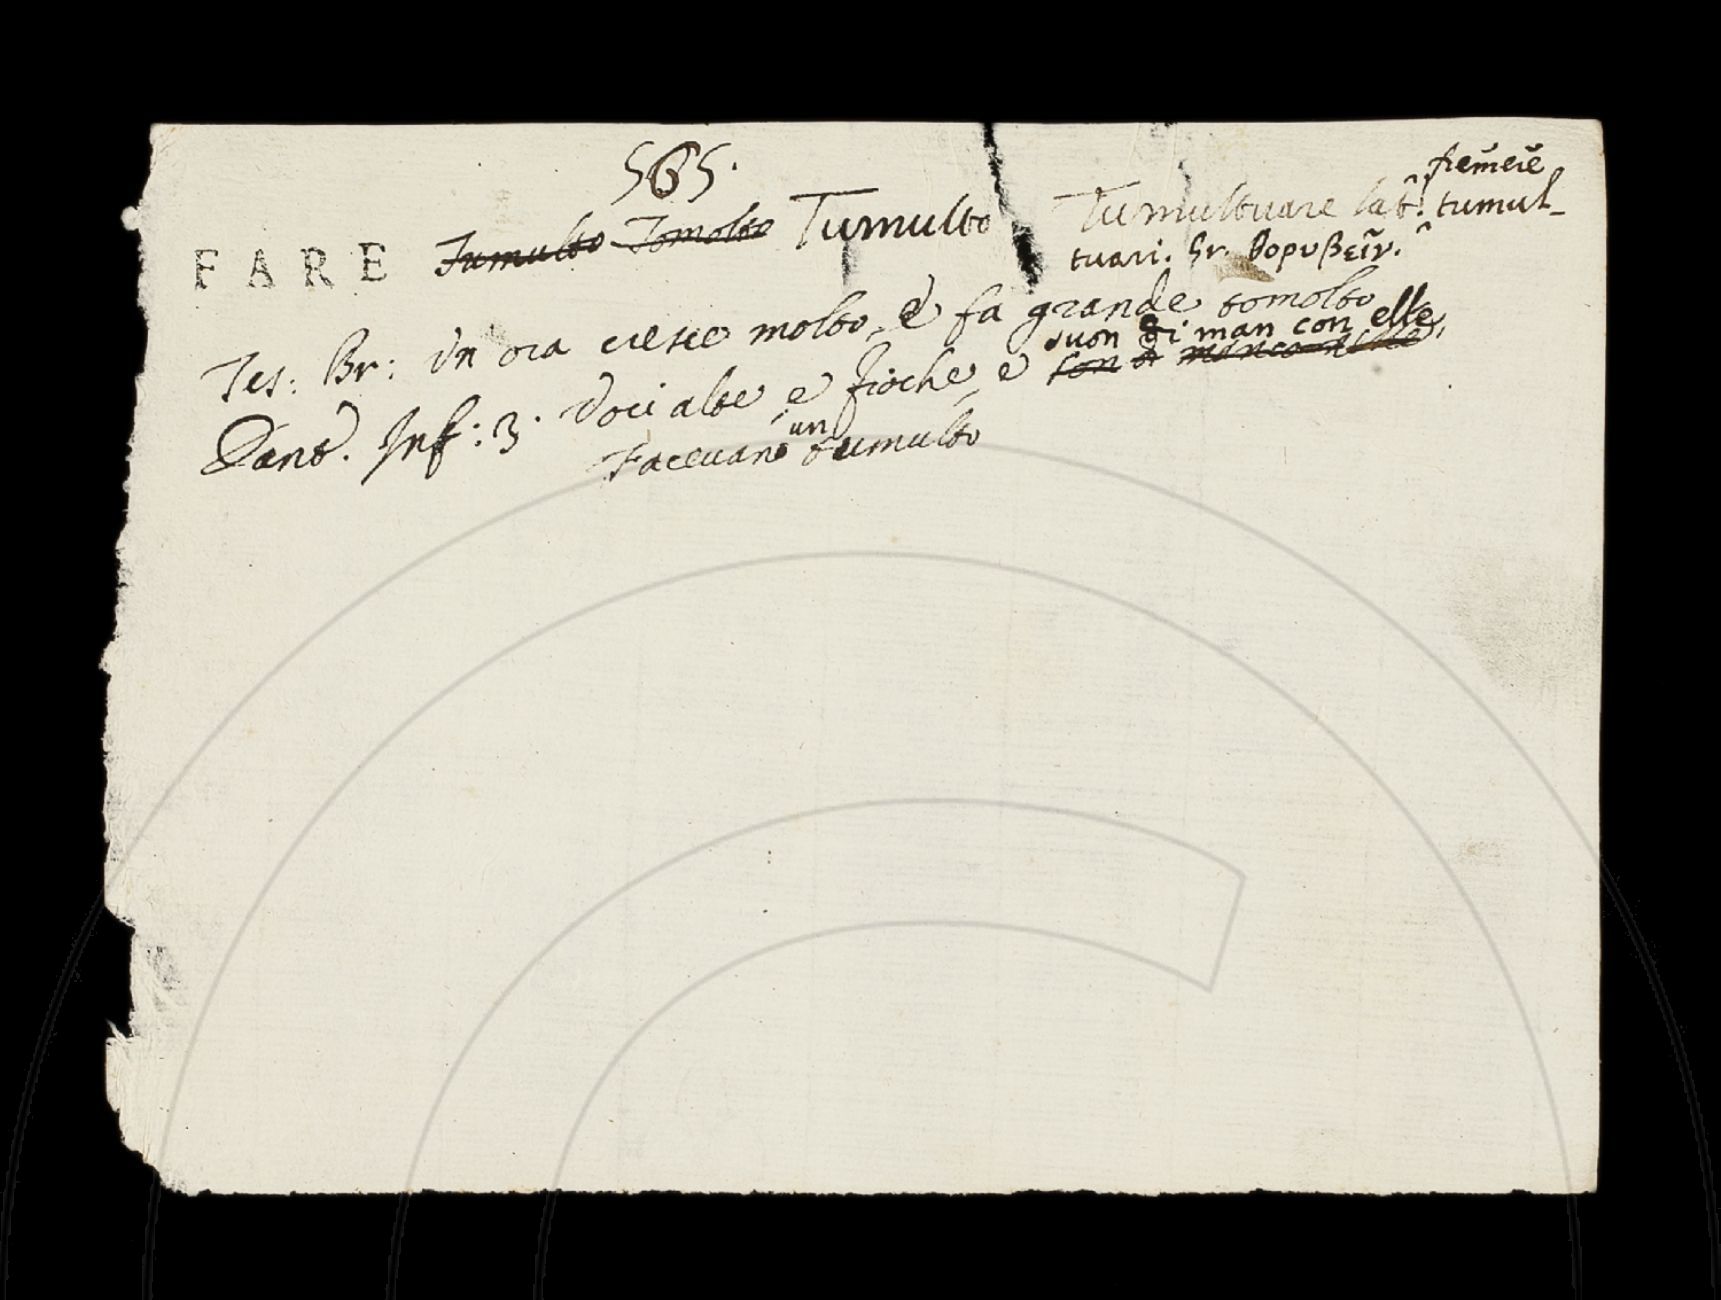 565.
fremere
FARE Tumulto Tomolto Tumulto Tumultuare lat. tumul-
tuari. Gr. θορυβεῖν.
Tes: Br: in ora cresce molto, e fa grande tomolto
suon di man con elle,
Dant. Inf: 3. Voci alte e fioche, e son di
un
Facevano tumulto